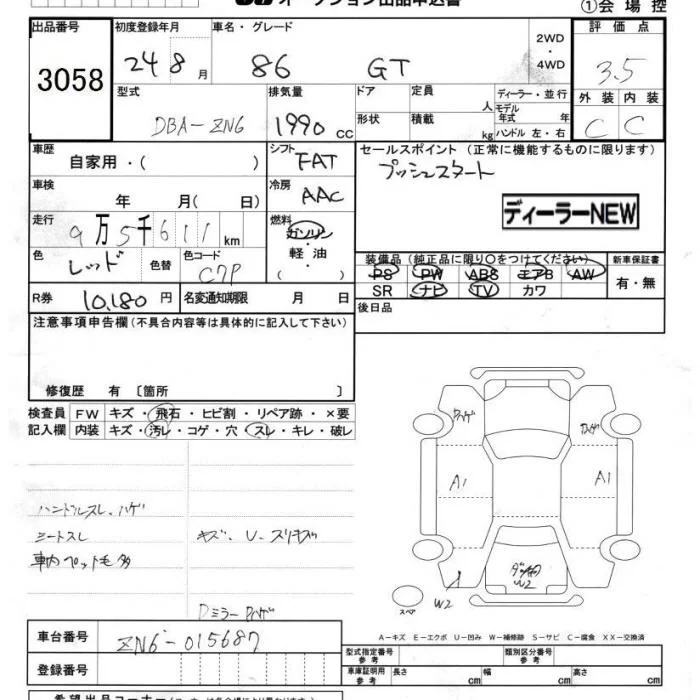 オークション出品申込書 ①会場控
出品番号 初度登録年月 車名・グレード 評価点
3058 24 8月 86 GT 2WD・4WD 3.5
型式 排気量 ドア 定員 人 ディーラー・並行 外装 内装
DBA-ZN6 1990 cc 形状 積載 kg モデル年式 年 ハンドル 左・右 C C
車歴 シフト セールスポイント(正常に機能するものに限ります)
自家用・( ) FAT プッシュスタート
車検 年 月( 日) 冷房 AAC
ディーラーNEW
走行 9万5千611km 燃料 ガソリン・軽油・( )
色 レッド 色替 色コード C7P
装備品(純正品に限り○をつけてください) 新車保証書
PS PW ABS エアB AW 有・無
SR ナビ TV カワ
R券 10,180円 名変通知期限 月 日 後日品
注意事項申告欄(不具合内容等は具体的に記入して下さい)
修復歴 有 〔箇所 〕
検査員 FW キズ・飛石・ヒビ割・リペア跡・×要
記入欄 内装 キズ・汚レ・コゲ・穴・スレ・キレ・破レ
A1 A1
ハンドルスレ、ハゲ
シートスレ キズ、U、スリキズ
車内ペット毛多
W2
W2
スペア
Dミラー
A-キズ E-エクボ U-凹み W-補修跡 S-サビ C-腐食 XX-交換済
車台番号 ZN6-015687
型式指定番号 参考 類別区分番号 参考
登録番号 車庫証明用 参考 長さ cm 幅 cm 高さ cm